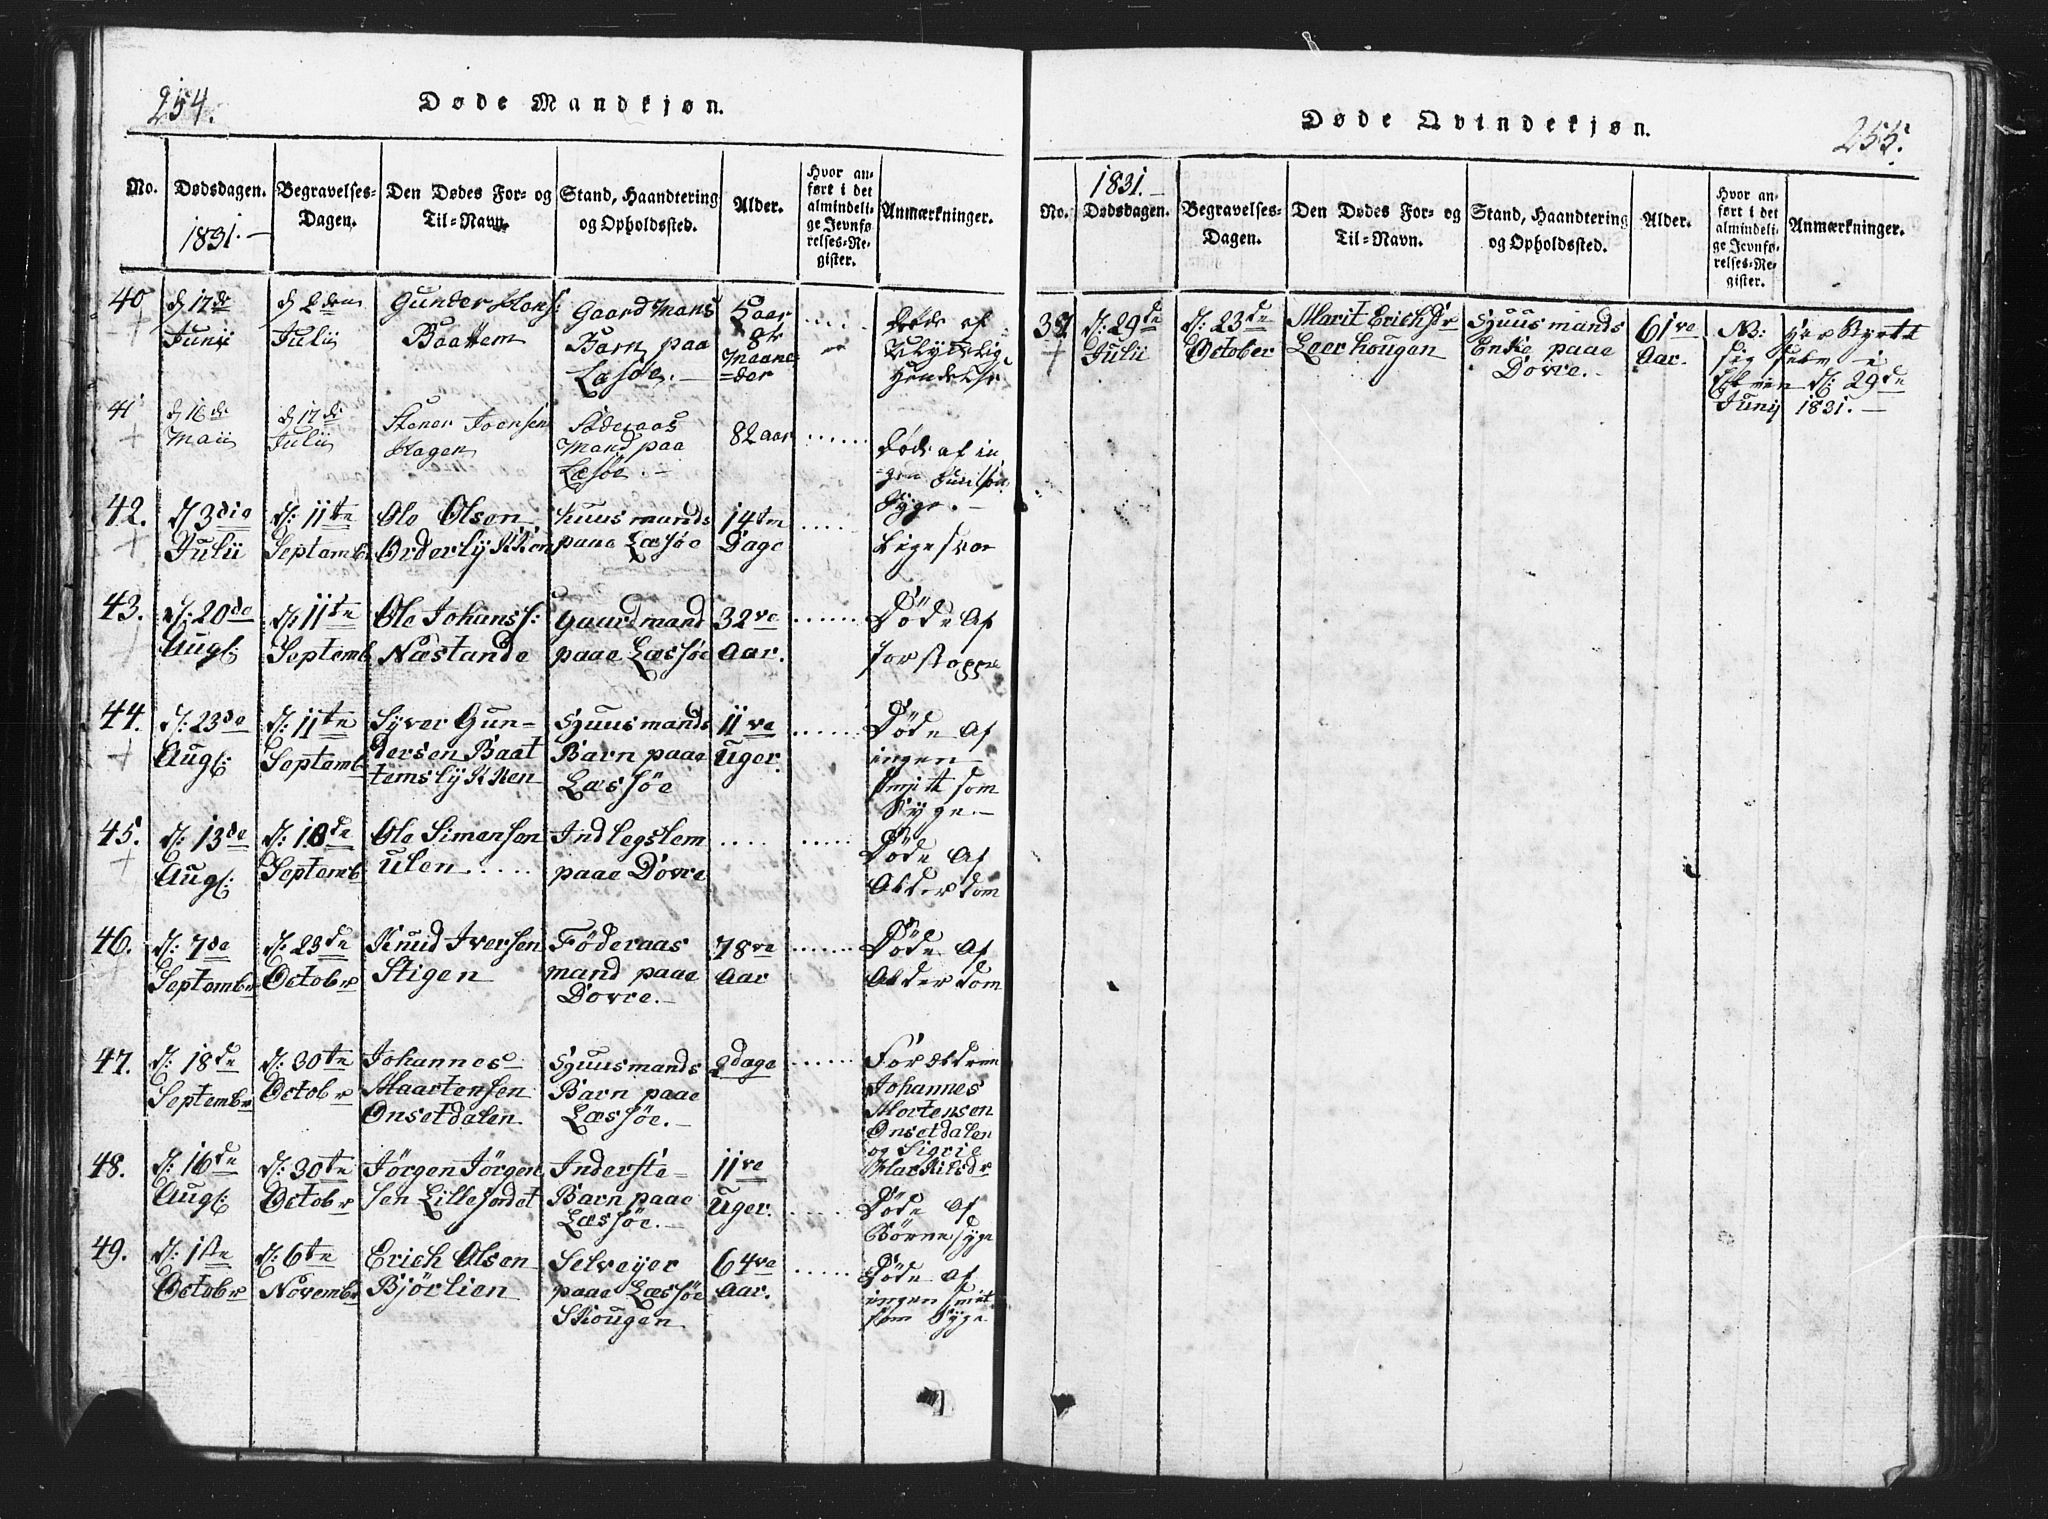 254.
Døde Mandkjøn.
No.
Dødsdagen.
1831.-
Begravelses-
Dagen.
Den Dødes For- og
Til-Navn.
Stand, Haandtering
og Opholdssted.
Alder.
Hvor an-
ført i det
almindeli-
ge Jevnfø-
relses-Re-
gister.
Anmærkninger.
40
d 17de
Junii
d 2den
Julii
Gunder
Baattem
Gaard Mans
Barn paa
Læsøe.-
5 aar
Maane
=der
Døde af
Ulykkelig
Hendelse
41
d 16de
Maii
d 17de
Julii
Stener Joensen
Hagen
Föderaas
Mand paa
Læsøe.-
82 aar
Døde af in
gen
Syge.-
42.
d 3die
Julii
d: 11te
Septembr
Ole Olson
Orderlykken
Huusmands
paae Læsøe
14ten
Dage
43.
d: 20de
Augs:
d: 11te
Septemb
Ole Johanss:
Næstande
Gaardmand
paae Læssøe
32ve
Aar.
Döde Af
forstoppe
44.
d: 23de
Augs:
d: 11te
Septembr
Syver Gun-
dersen Baat
temslykken
Huusmands
Barn paae
Læssøe
11ve
Uger.
Döde Af
ingen
smitsom
Syge.-
45.
d: 13de
Augs:
d: 18de
Septembr
Ole Simensen
Ulen
Indlegslem
paae Dovre
Döde Af
Alderdom
46.
d: 7de
Septembr
d: 23de
Octobr
Knud Iversen
Stigen
Föderaas
mand paae
Dovre.-
78ve
Aar
Döde Af
Alderdom
47.
d: 18de
Septembr
d: 30te
Octobr
Johannes
Maartensen
Onsetdalen
Huusmands
Barn paae
Læssøe.-
2 dage
Forældrene
Johannes
Mortensen
Onsetdalen
og Sigrie
48.
d: 16de
Augs:
d: 30te
Octobr
Jörgen Jörgen
sen Lillejordet
Inderste
Barn paae
Læssøe.-
11ve
Uger.
Döde Af
Börnesyge
49.
d: 1ste
Octobr
d: 6te
Novembr
Erich Olson
Bjørlien
Selveyer
paae Læssøe
Skougen
64ve
Aar.
Döde Af
ingen smit
som Syge
255.
Døde Qvindekjøn.
No.
1831.-
Dødsdagen.
Begravelses-
Dagen.
Den Dødes For- og
Til-Navn.
Stand, Haandtering
og Opholdssted.
Alder.
Hvor an-
ført i det
almindeli-
ge Jevnfø-
relses-Re-
gister.
Anmærkninger.
d: 29de
Julii
d: 23de
October
Marit Erichsdr
Leerhougen
Huusmands
Enke paae
Dovre.-
61ve
Aar.
NB: Har Styrtt
sig selv i
Elven d: 29de
Junij 1831.-